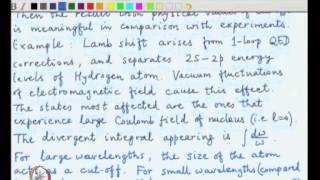 Then the result with physical values of
is meaningful in comparison with experiments.
Example : Lamb shift arises from 1-loop QED
corrections, and separates 2S-2p energy
levels of Hydrogen atom. Vacuum fluctuations
of electromagnetic field cause this effect.
The states most affected are the ones that
experience large Coulomb field of nucleus (i.e. l=0).
The divergent integral appearing is ∫dω/ω.
For large wavelengths, the size of the atom
acts as a cut-off. For small wavelengths (compared